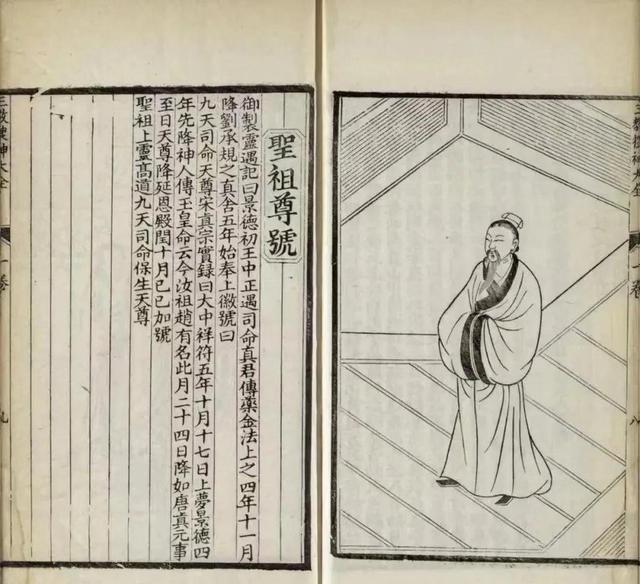 三教搜神大全
一卷
八
聖祖尊號
御製靈遇記曰景德初王中正遇司命真君傳藥金法上之四年十一月
降劉承規之真舍五年始奉上徽號曰
九天司命天尊宋真宗實録曰大中祥符五年十月十七日上夢景德四
年先降神人傳玉皇命云今汝祖趙有名此月二十四日降如唐真元事
至日天尊降延恩殿閏十月己巳加號
聖祖上靈高道九天司命保生天尊
三教搜神大全
一卷
九